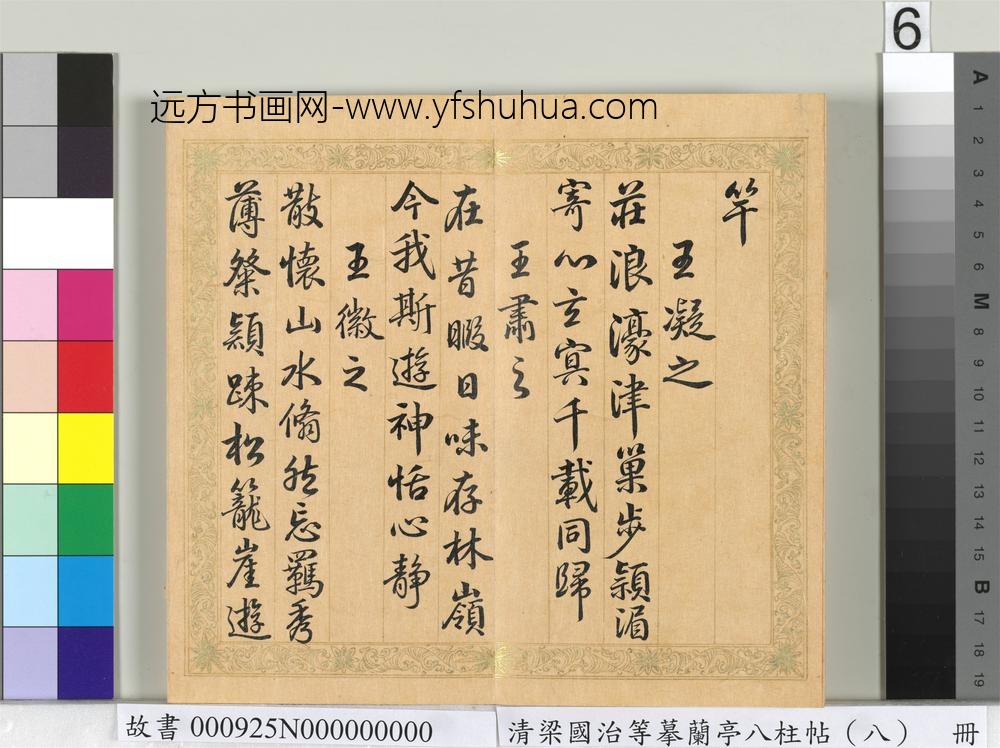 6
远方书画网-www.yfshuhua.com
竿
王凝之
莊浪濠津巢步潁湄
寄心玄冥千載同歸
王肅之
在昔暇日味存林嶺
今我斯遊神恬心静
王徽之
散懷山水翛然忘羈秀
薄粲穎踈松籠崖遊
A
1
2
3
4
5
6
M
8
9
10
11
12
13
14
15
B
17
18
19
故書 000925N000000000
清梁國治等摹蘭亭八柱帖（八） 冊